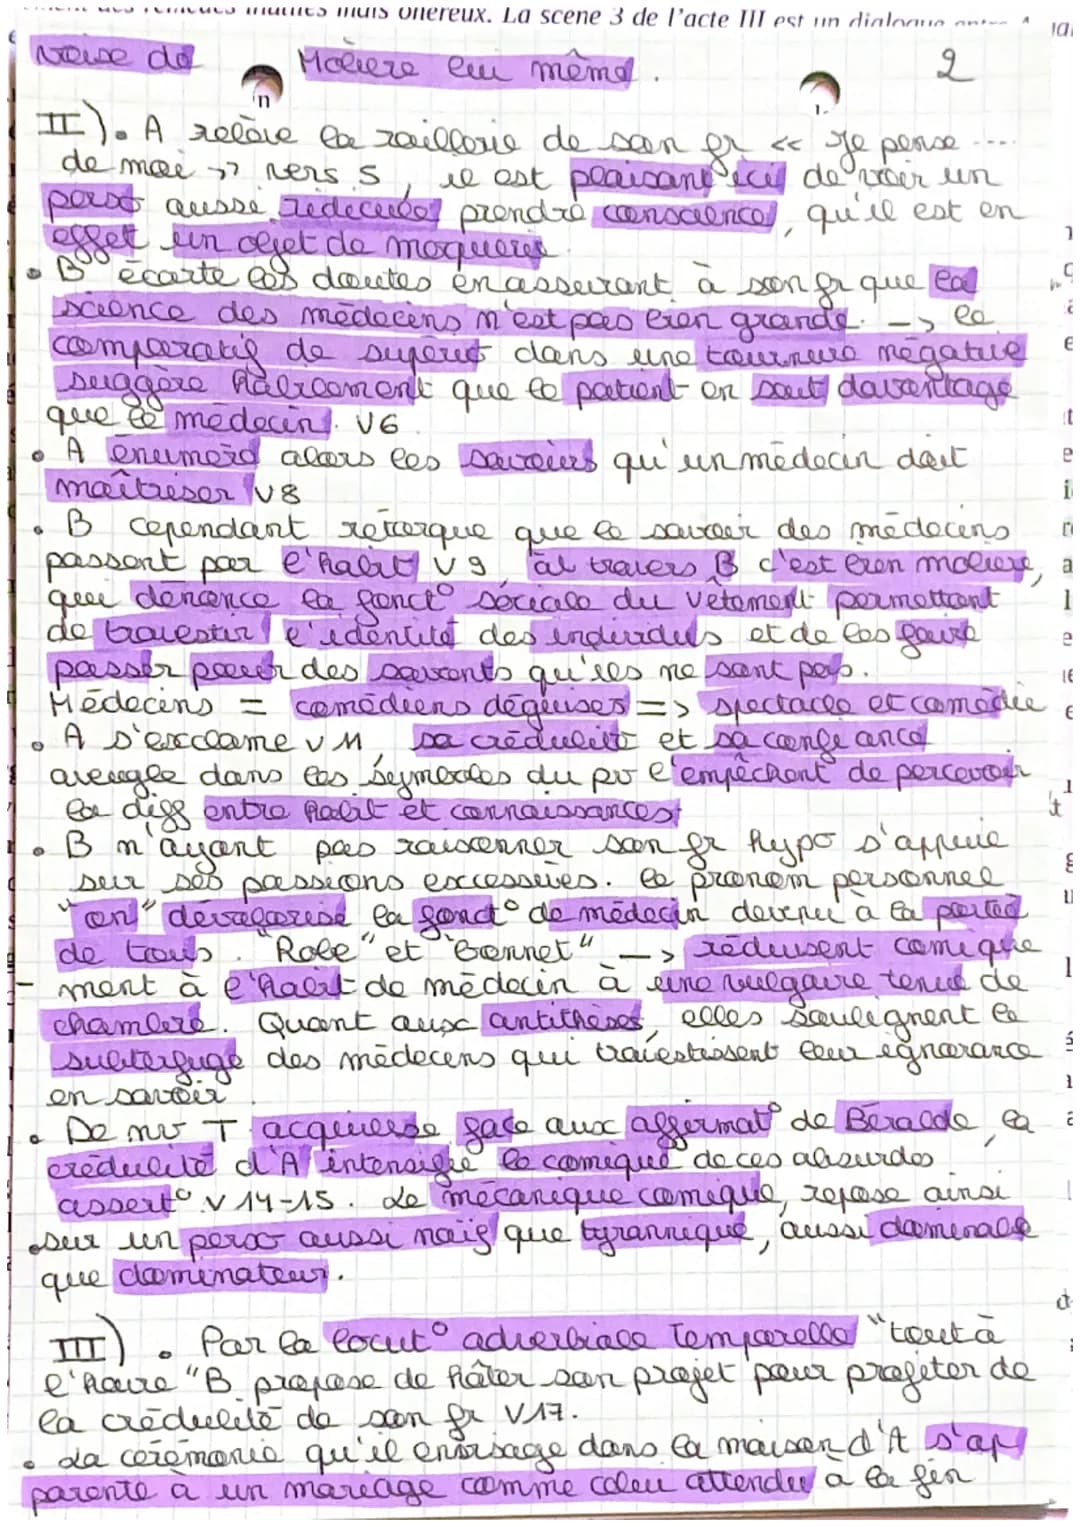 mais onéreux. La scène 3 de l'acte III est un dialogue
voise de Molière lui même. 2
II). A relève la raillerie de son fr << Je pense ....
de moi >> vers 5, il est plaisant ici de voir un
perso aussi ridicule prendre conscience, qu'il est en
effet un objet de moquerie
• B écarte les doutes en assurant à son fr que la
science des médecins n'est pas bien grande. -> le
comparatif de supério dans une tournure négative
suggère habilement que le patient en sait davantage
que le médecin. V6
• A énumère alors les savoirs qu'un médecin doit
maîtriser V8
• B cependant rétorque que le savoir des médecins
passent par l'habit V9, à travers B c'est bien molière,
qui dénonce la fonct° sociale du vêtement permettant
de travestir l'identité des individus et de les faire
passer pour des savants qu'ils ne sont pas.
Médecins = comédiens déguisés => spectacle et comédie
• A s'exclame V11, sa crédulité et sa confiance
aveugle dans les symboles du pv l'empêchent de percevoir
la diff entre habit et connaissances
• B n'ayant pas raisonner son fr hypo s'appuie
sur ses passions excessives. Le pronom personnel
"on" dévalorise la fonct° de médecin devenu à la portée
de tous. "Robe" et "Bonnet" --> réduisent comique
ment à l'habit de médecin à une vulgaire tenue de
chambre. Quant aux antithèses, elles soulignent le
subterfuge des médecins qui travestissent leur ignorance
en savoir
• De nv T acquiesse face aux affirmat° de Béralde, la
crédulité d'A intensifie le comique de ces absurdes
assert° V 14-15. Le mécanique comique, repose ainsi
• sur un perso aussi naïf que tyrannique, aussi dominable
que dominateur.
III) • Par la locut° adverbiale temporelle "tout à
l'heure" B propose de hâter son projet pour profiter de
la crédulité de son fr V17.
• La cérémonie qu'il envisage dans la maison d'A s'ap
parente à un mariage comme celui attendu à la fin